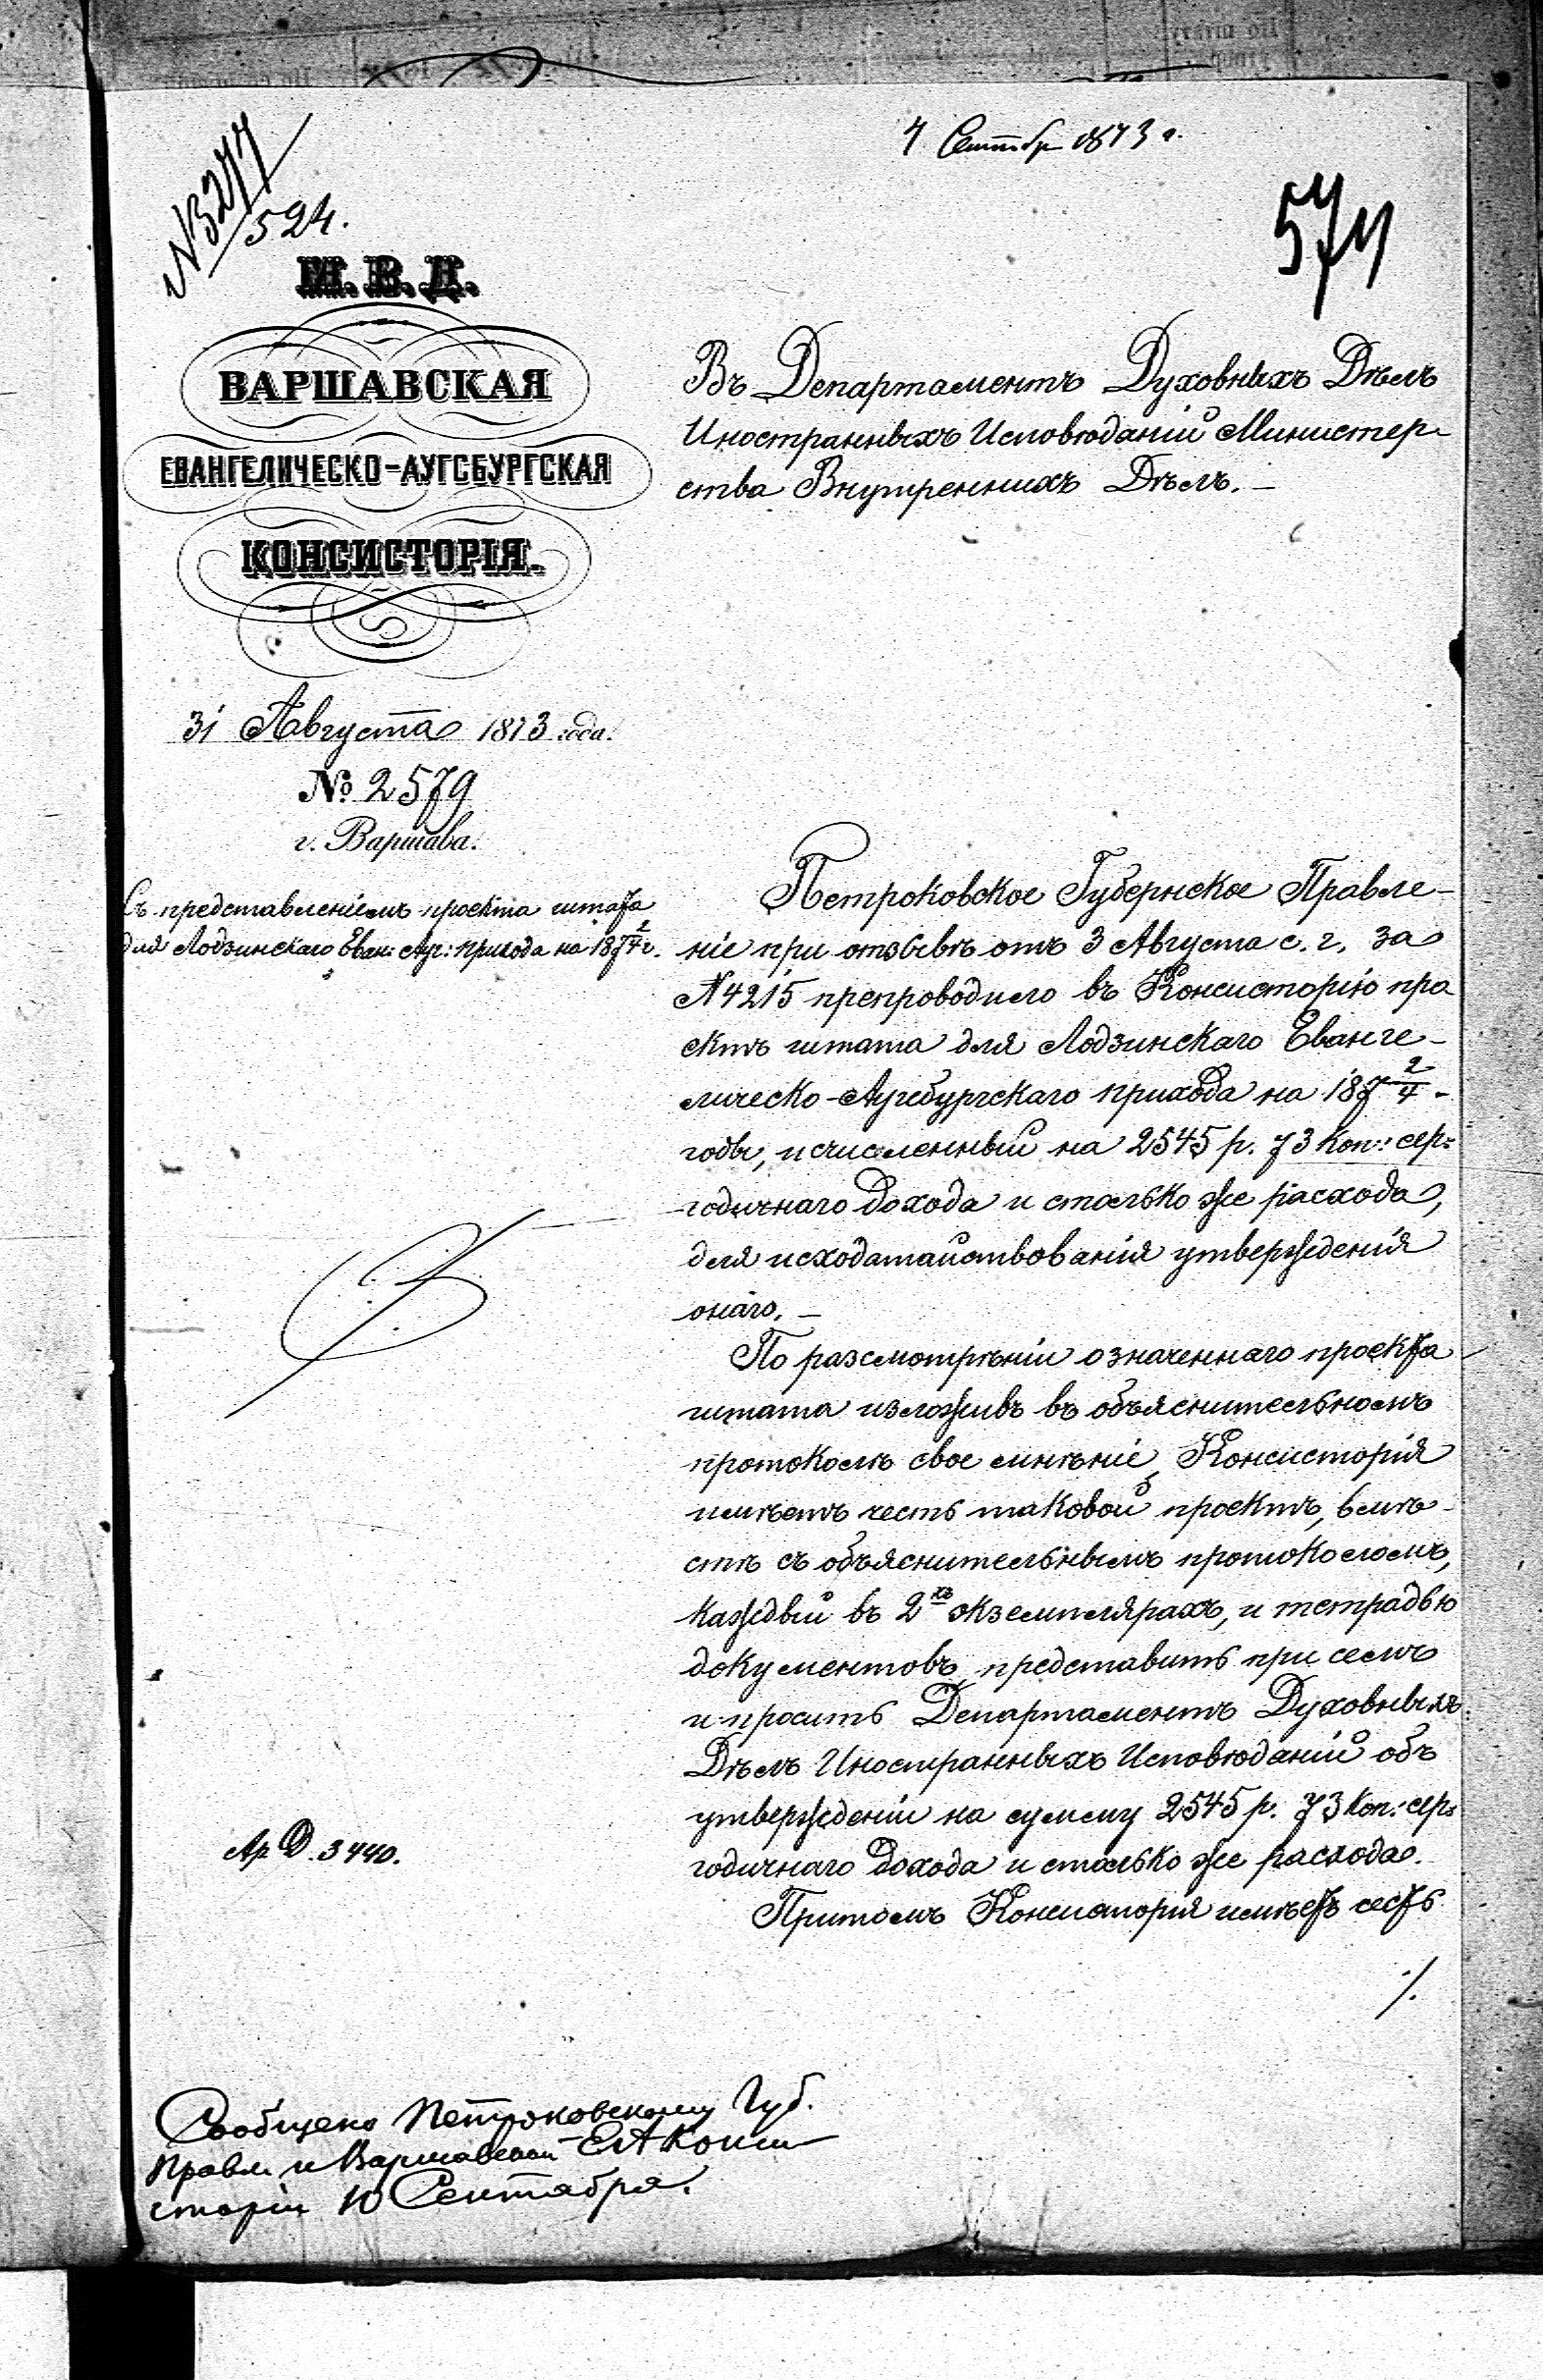 4 Сентябр 1873 г.
№ 3277
524.
574
М. В. Д.
ВАРШАВСКАЯ
ЕВАНГЕЛИЧЕСКО-АУГСБУРГСКАЯ
КОНСИСТОРІЯ.
31 Августа 1873 года.
№ 2579
г. Варшава.
Съ представленіемъ проекта штата
для Лодзинскаго Еван: Ауг: прихода на 187 2/4 г.
Въ Департаментъ Духовныхъ Дѣлъ
Иностранныхъ Исповѣданій Министер-
ства Внутреннихъ Дѣлъ. –
Петроковское Губернское Правле-
ніе при отзывѣ отъ 3 Августа с. г. за
N 4215 препроводило въ Консисторію про-
ектъ штата для Лодзинскаго Еванге-
лическо-Аугсбургскаго прихода на 187 2/4 -
годы, исчисленный на 2545 р. 73 коп: сер:
годичнаго дохода и столько же расхода,
для исходатайствованія утвержденія
онаго. –
По разсмотрѣніи означеннаго проекта
штата изложивъ въ объяснительномъ
протоколѣ свое мнѣніе, Консисторія
имѣетъ честь таковой проектъ, вмѣ-
стѣ съ объяснительнымъ протоколомъ,
каждый въ 2хъ экземплярахъ, и тетрадью
документовъ представить при семъ
и просить Департаментъ Духовныхъ
Дѣлъ Иностранныхъ Исповѣданій объ
утвержденіи на сумму 2545 р. 73 коп: сер:
годичнаго дохода и столько же расхода.
Притомъ Консисторія имѣетъ честь
·/.
Ар. D. 3440.
Сообщено Петроковскому Губ.
Правл. и Варшавской ЕА Конси
сторіи 10 Сентября.